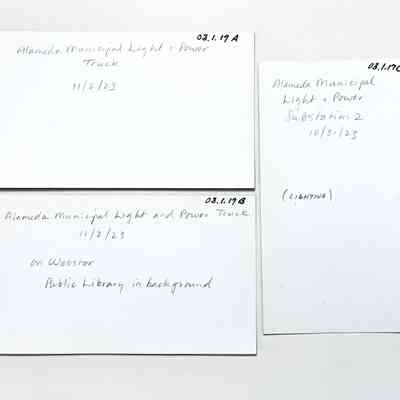 03.1.19 A
Alameda Municipal Light & Power
Truck
11/2/23
03.1.19 B
Alameda Municipal Light and Power Truck
11/2/23
on Webster
Public Library in background
03.1.19C
Alameda Municipal
Light & Power
Substation 2
10/31/23
(LIGHTING)